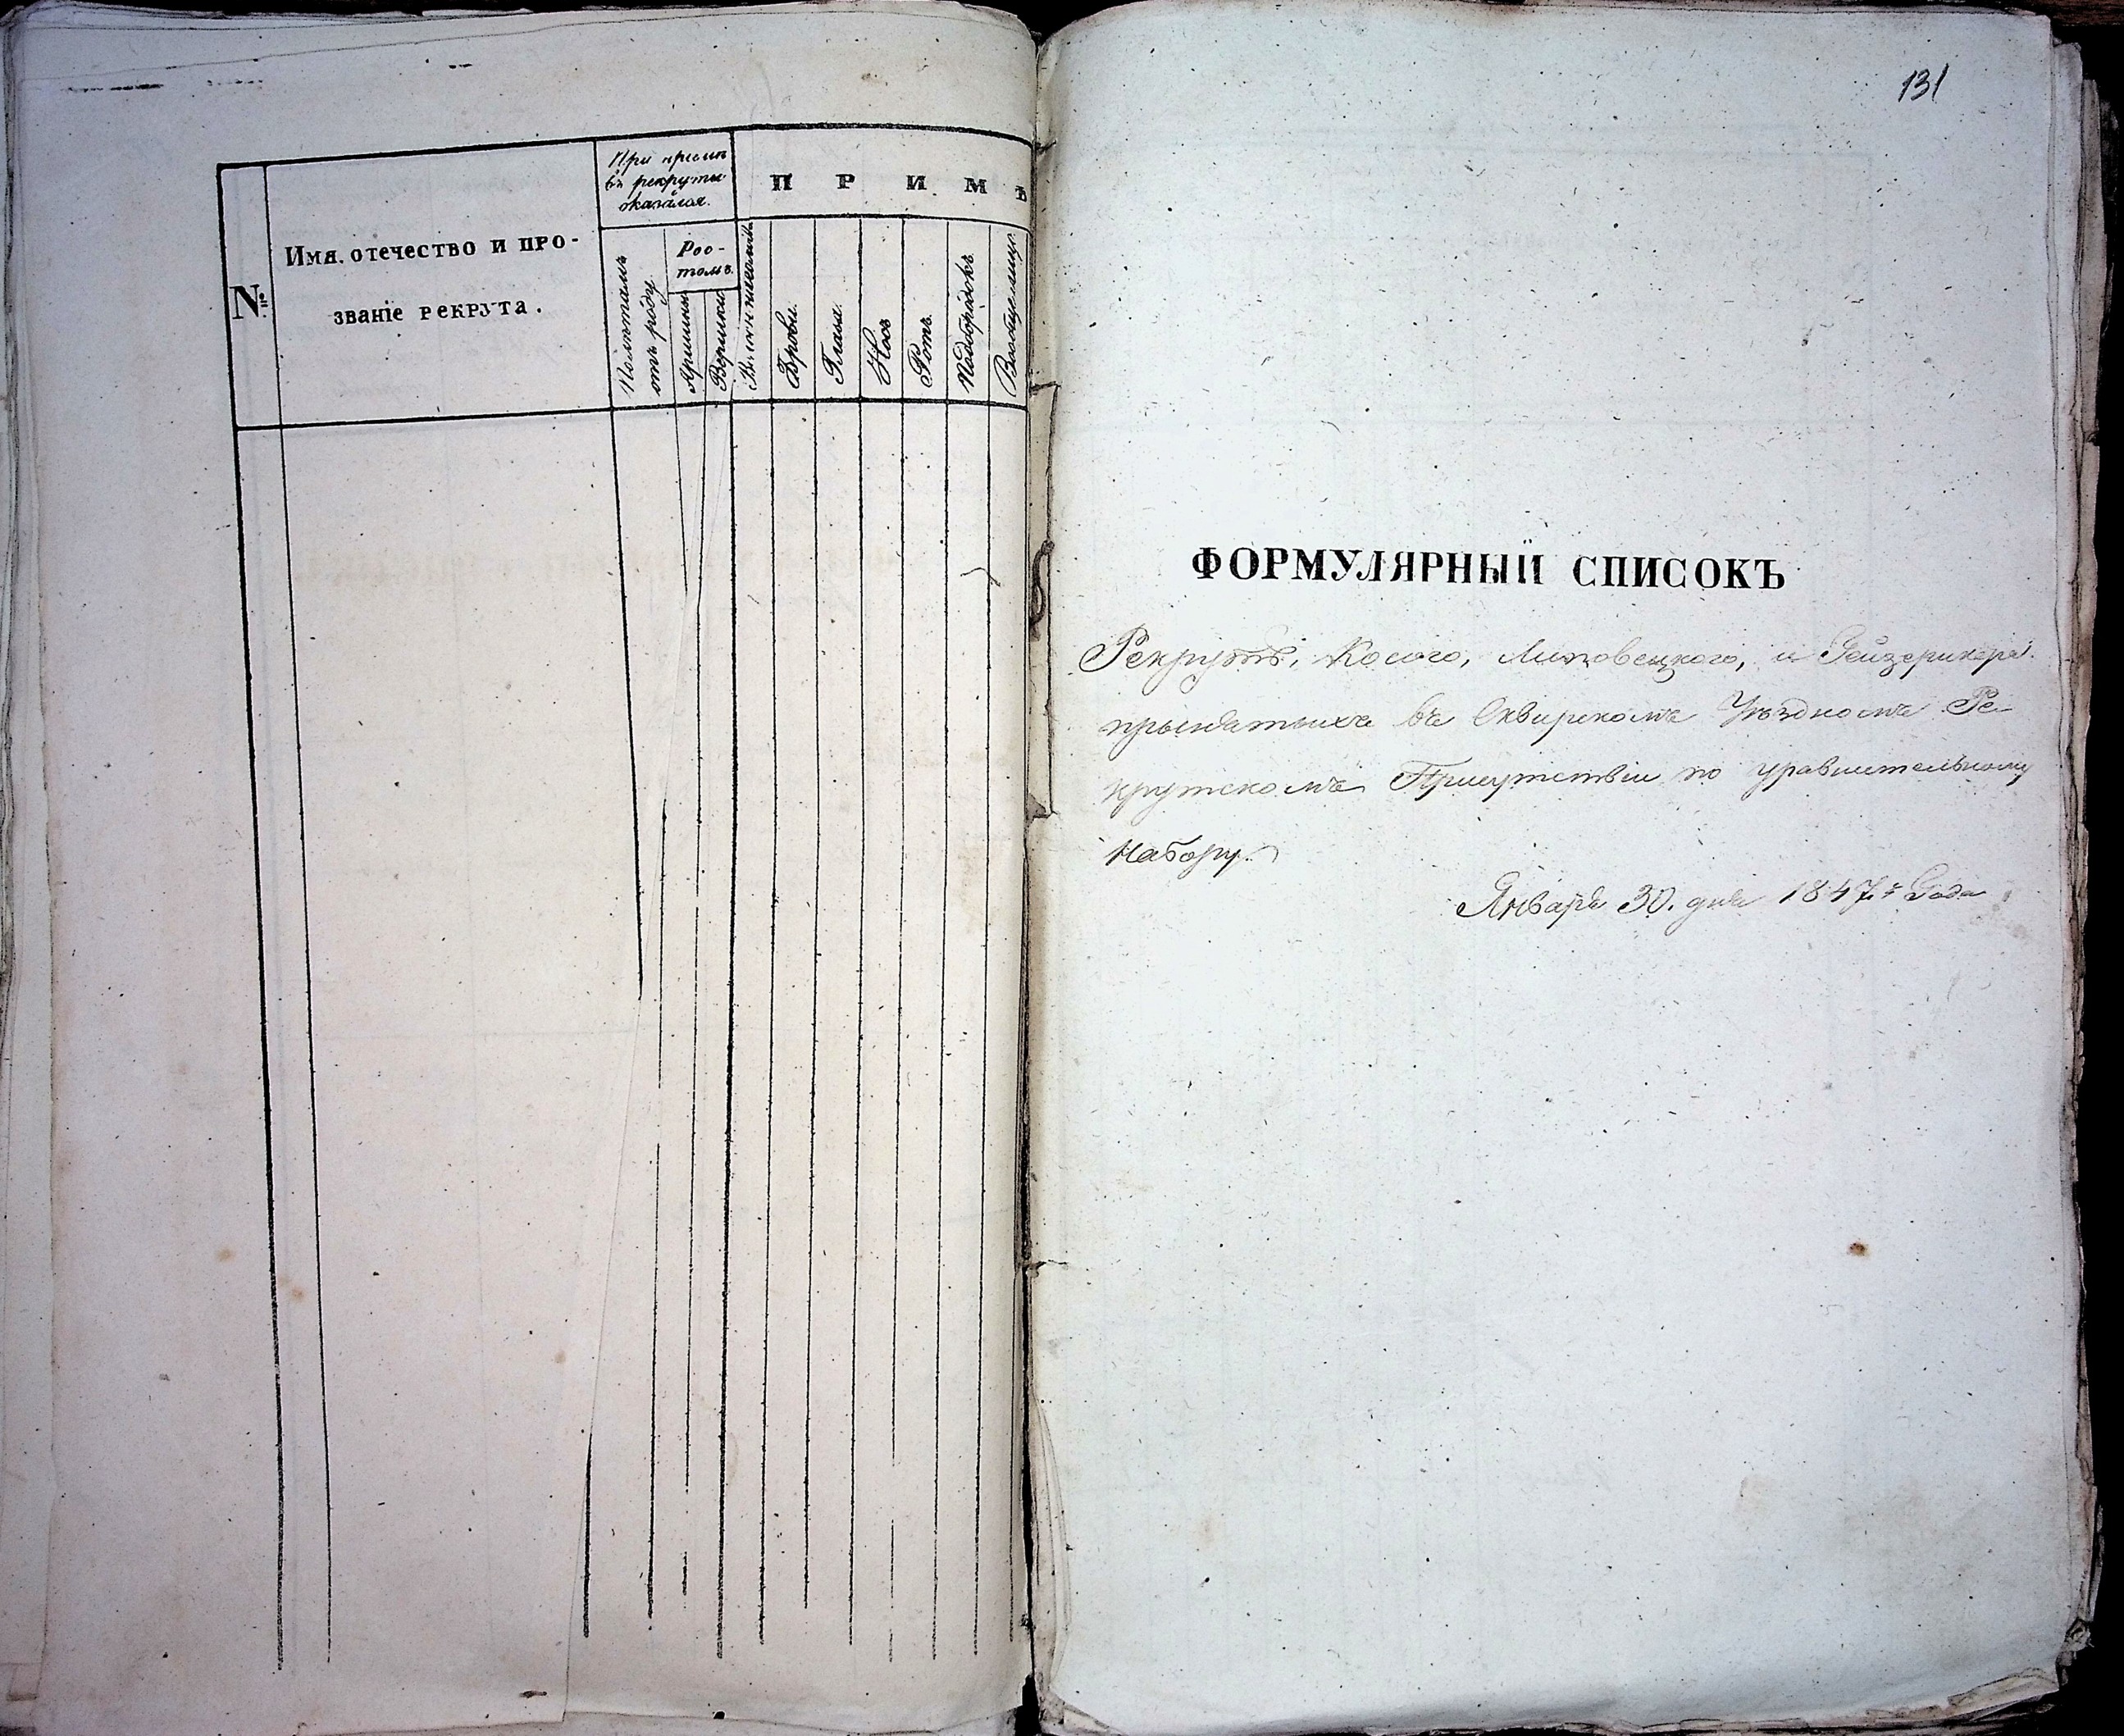 №
Имя. отечество и про-
званіе рекрута.
При пріемѣ
въ рекруты
оказался.
По лѣтамъ
отъ роду
Рос-
томъ.
Аршины
Вершки
П Р И М Ѣ
Брови.
Глаза.
Носъ
Ротъ.
Подбородокъ
Вообще лицо.
131
ФОРМУЛЯРНЫЙ СПИСОКЪ
Рекрутъ, Косого, Липовецкого, и
принятыхъ въ Сквирскомъ Уѣздномъ Ре-
крутскомъ Присутствіи по уравнительному
набору.
Января 30. дня 1847.г Года